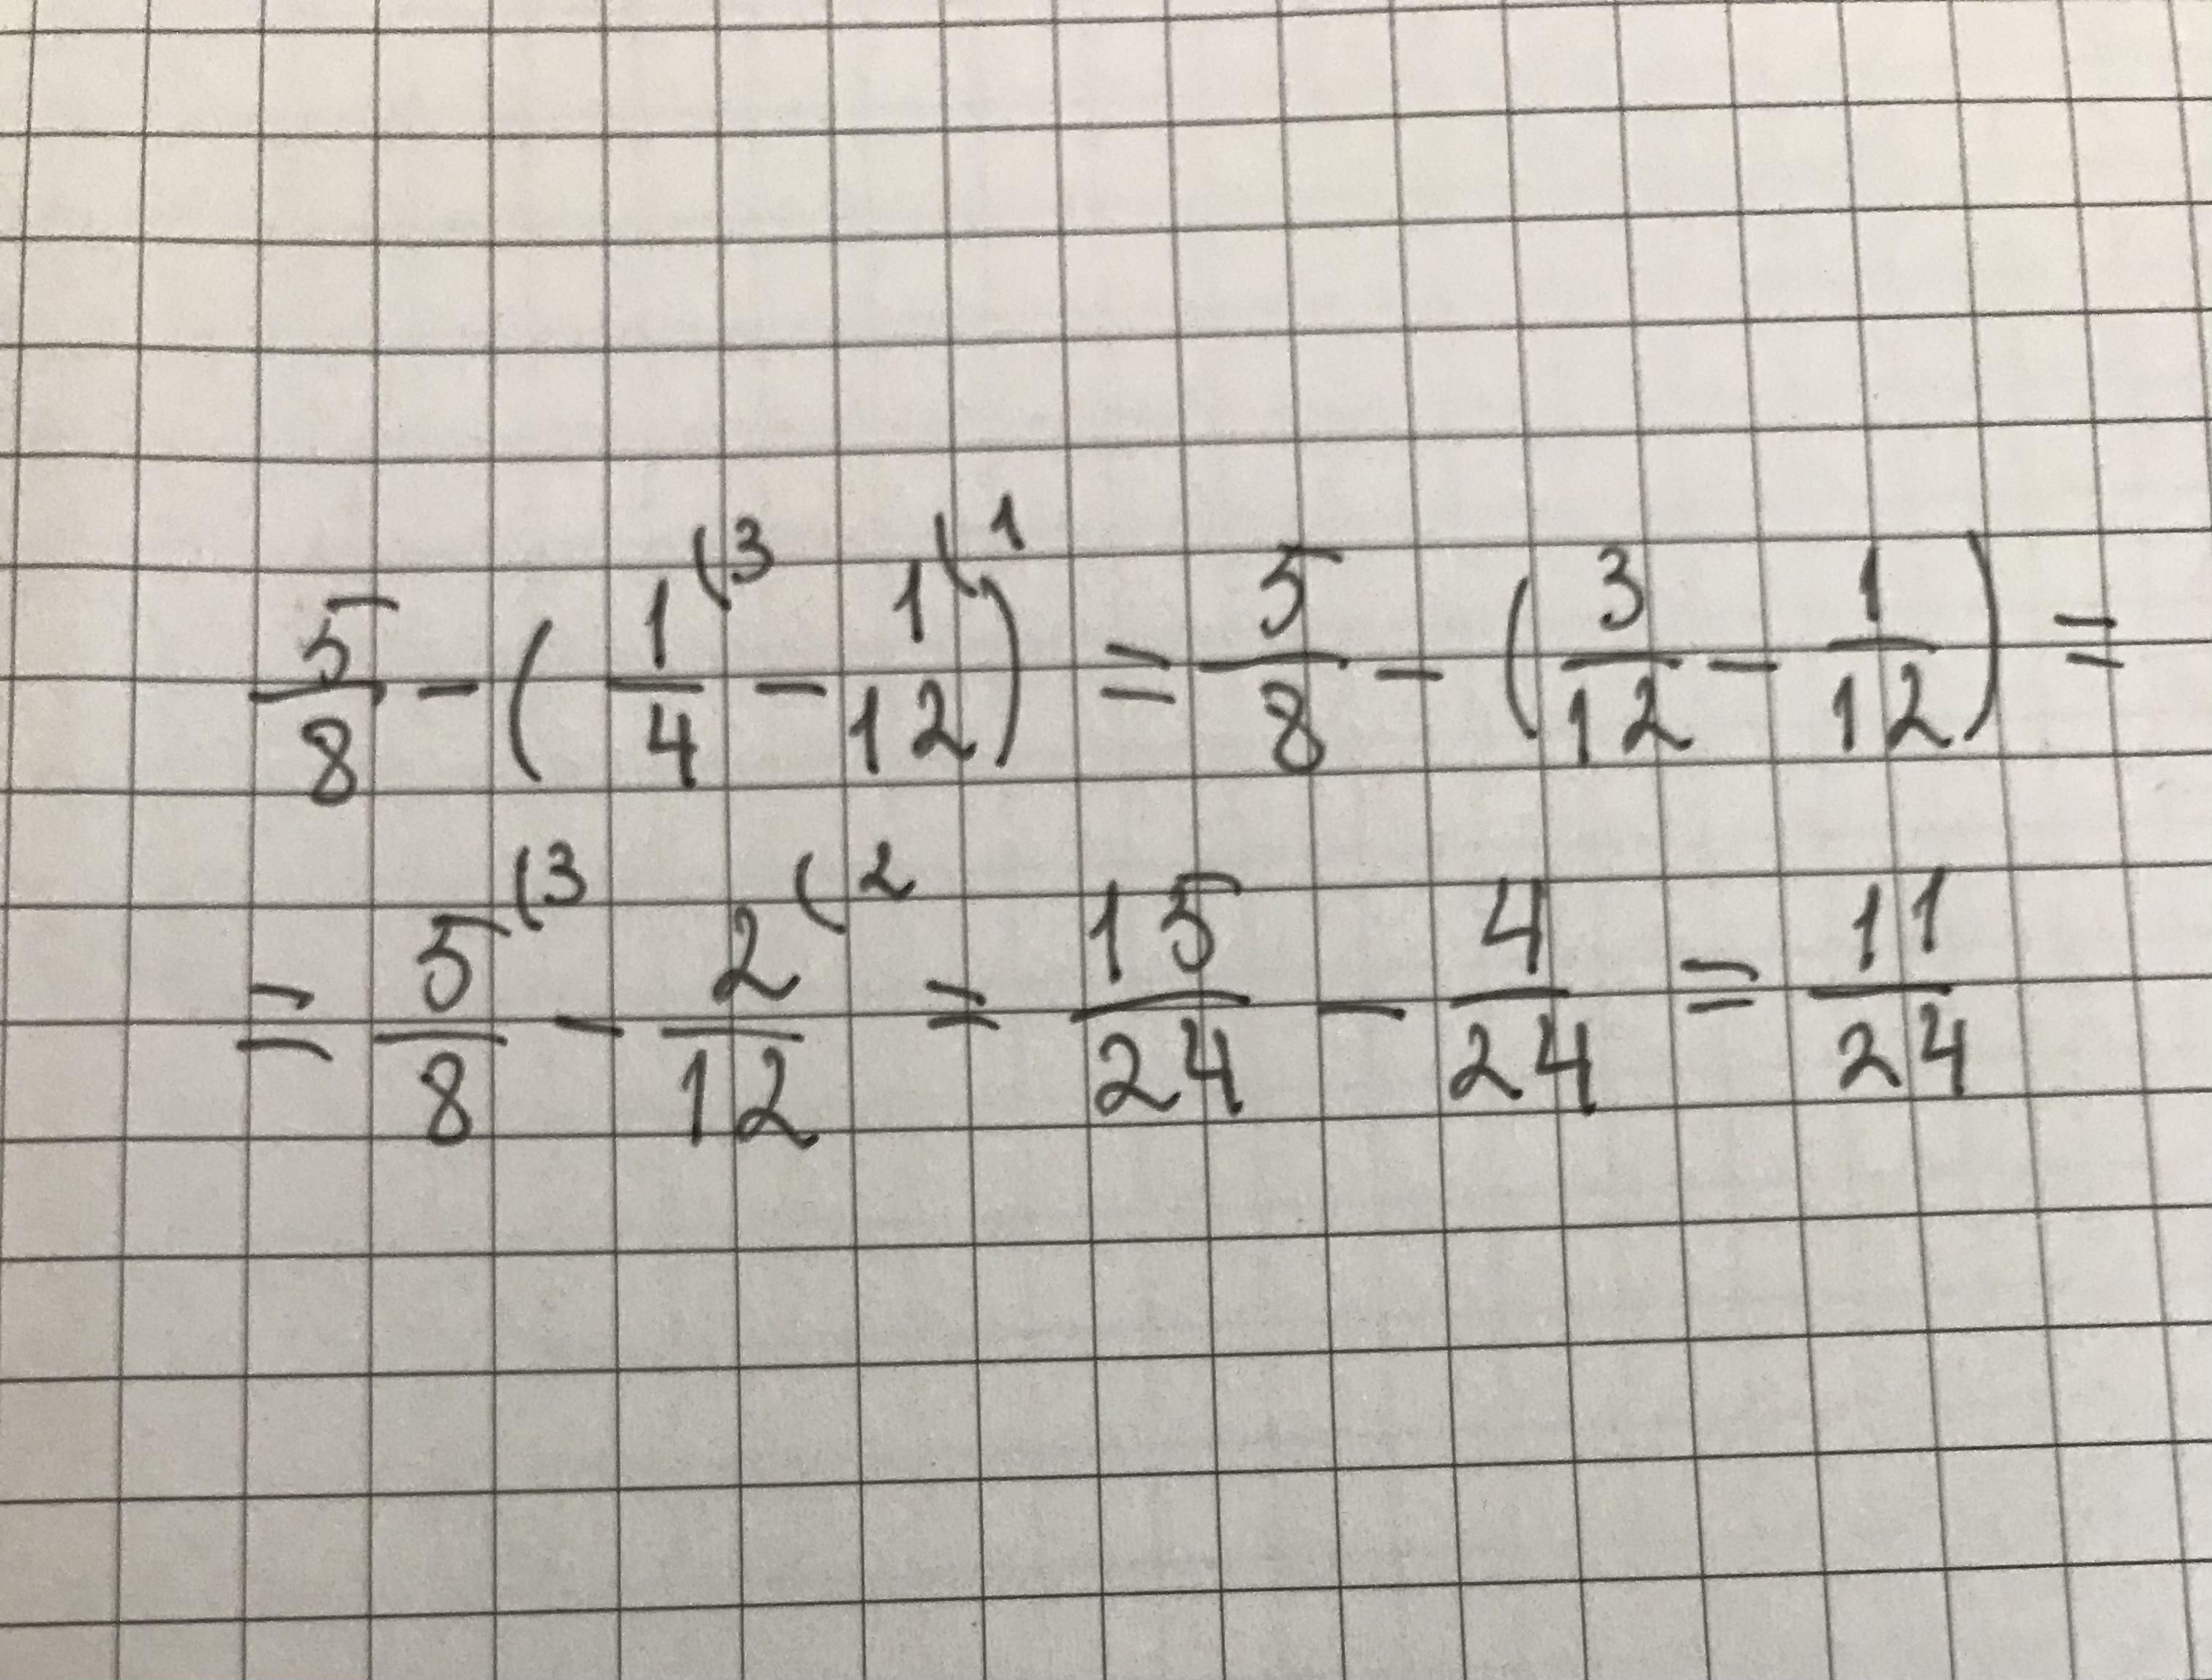 5/8 - (1/4 (3 - 1/12 (1) = 5/8 - (3/12 - 1/12) =
= 5/8 (3 - 2/12 (2 = 15/24 - 4/24 = 11/24